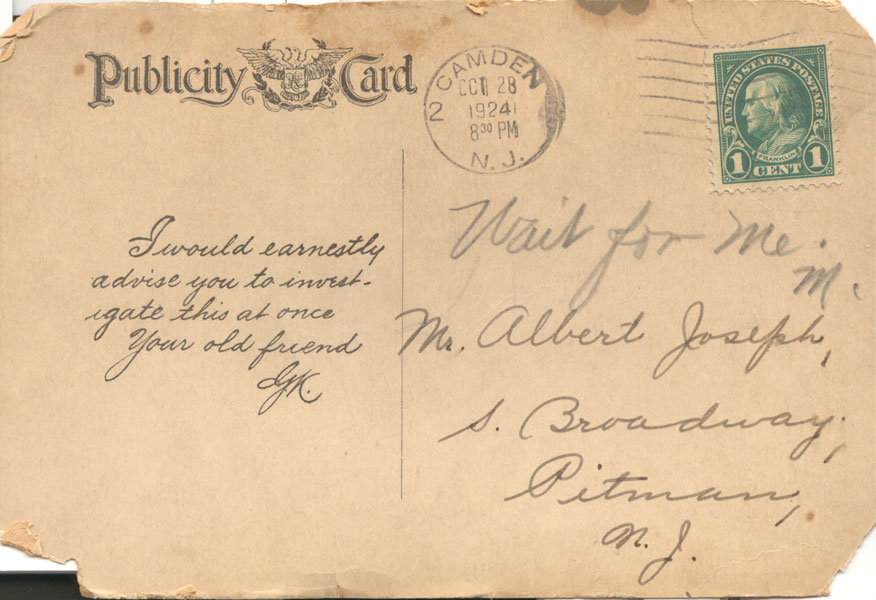 Publicity Card
CAMDEN
OCT 28
1924
8 30 PM
N. J.
2
UNITED STATES POSTAGE
FRANKLIN
1 CENT 1
I would earnestly
advise you to invest-
igate this at once
Your old friend
GK.
Wait for Me.
M.
Mr. Albert Joseph,
S. Broadway,
Pitman,
N. J.